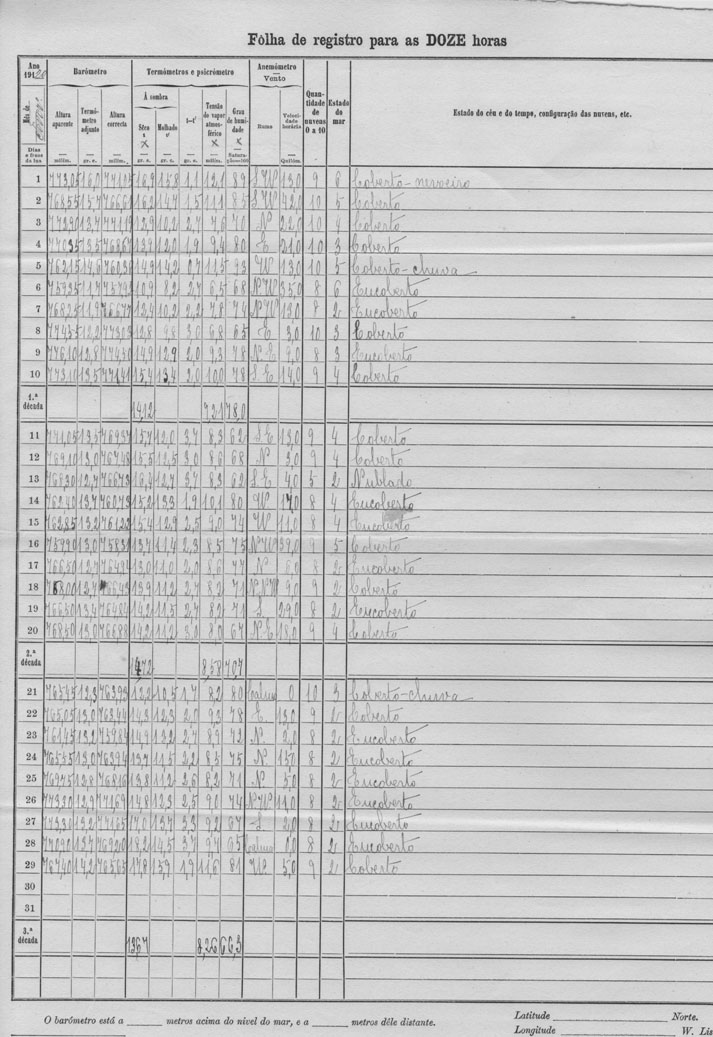 Fôlha de registro para as DOZE horas
Ano
1920
Mês de
Dias e fases da lua
Barómetro
Altura aparente
Termómetro adjunto
Altura correcta
milím. gr. c. milím.
Termómetros e psicrómetro
À sombra
Sêco t
Molhado t'
t—t'
Tensão do vapor atmosférico
Grau de humidade
gr. c. gr. c. gr. c. milím.
Anemómetro
Vento
Rumo
Velocidade horária
Quilóm.
Quantidade de nuvens 0 a 10
Estado do mar
Estado do céu e do tempo, configuração das nuvens, etc.
1 773,05 16,0 771,05 16,9 15,8 1,1 12,1 89 S.W 13,0 9 6 Coberto-nevoeiro
2 768,55 15,7 766,61 16,2 14,7 1,5 11,1 85 S.W 42,0 10 5 Coberto
3 773,90 13,7 12,9 10,2 2,7 7,6 70 N 22,0 10 4 Coberto
4 770,35 13,5 768,67 13,9 12,0 1,9 9,4 80 E 21,0 10 3 Coberto
5 762,15 14,6 760,36 14,9 14,2 0,7 11,5 93 W 13,0 10 5 Coberto-chuva
6 759,35 11,7 757,92 10,9 8,2 2,7 6,5 68 N.W 35,0 8 6 Encoberto
7 768,25 11,9 766,77 12,4 10,2 2,2 7,8 74 N.W 13,0 8 2 Encoberto
8 774,55 12,2 773,03 12,8 9,8 3,0 6,8 65 E 3,0 10 3 Coberto
9 776,10 12,8 774,50 14,9 12,9 2,0 9,3 78 N.E 9,0 8 3 Encoberto
10 773,10 13,5 771,41 15,4 13,4 2,0 10,0 78 S.E 14,0 9 4 Coberto
1.ª década 141,2 72,1 78,0
11 771,05 13,5 769,37 15,7 12,0 3,7 8,3 62 S.E 13,0 9 4 Coberto
12 769,10 13,0 767,48 15,5 12,5 3,0 8,6 68 N 3,0 9 4 Coberto
13 768,30 12,7 766,73 16,4 12,7 3,7 8,3 62 S.E 4,0 5 2 Nublado
14 762,40 13,7 760,73 15,2 13,3 1,9 10,1 80 W 17,0 8 4 Encoberto
15 762,85 13,2 761,22 15,4 12,9 2,5 9,0 74 W 11,0 8 4 Encoberto
16 759,90 13,0 758,31 13,7 11,4 2,3 8,5 75 N.W 39,0 9 5 Coberto
17 766,50 12,7 764,94 13,0 11,0 2,0 8,6 77 N 8,0 8 2 Encoberto
18 12,7 13,9 11,2 2,7 8,2 71 N.N.W 9,0 9 2 Coberto
19 766,50 13,4 764,84 14,2 11,5 2,7 8,2 71 S 29,0 8 2 Encoberto
20 768,50 13,0 766,88 14,2 11,2 3,0 8,0 67 N.E 18,0 9 4 Coberto
2.ª década 147,2 85,8 70,7
21 765,45 12,3 763,93 12,2 10,5 1,7 8,2 80 Calmo 0 10 3 Coberto-chuva
22 765,05 13,0 763,44 14,3 12,3 2,0 9,3 78 E 13,0 9 2 Coberto
23 761,45 13,2 759,84 14,9 12,2 2,7 8,9 72 N 2,0 8 2 Encoberto
24 765,55 13,0 763,94 13,7 11,5 2,2 8,5 75 N 15,0 8 2 Encoberto
25 769,75 12,8 768,16 13,8 11,2 2,6 8,2 71 N 5,0 8 2 Encoberto
26 773,30 12,9 771,69 14,8 12,3 2,5 9,0 74 N.W 11,0 8 2 Encoberto
27 773,30 13,2 771,65 17,0 13,7 3,3 9,2 67 S 2,0 8 2 Encoberto
28 770,90 13,7 769,20 18,2 14,5 3,7 9,7 65 Calmo 0,0 8 2 Encoberto
29 767,40 14,2 765,65 17,8 15,9 1,9 11,6 81 W 5,0 9 2 Coberto
30
31
3.ª década 136,7 82,6 66,3
O barómetro está a ______ metros acima do nivel do mar, e a ______ metros dêle distante.
Latitude ______ Norte.
Longitude ______ W. Lis